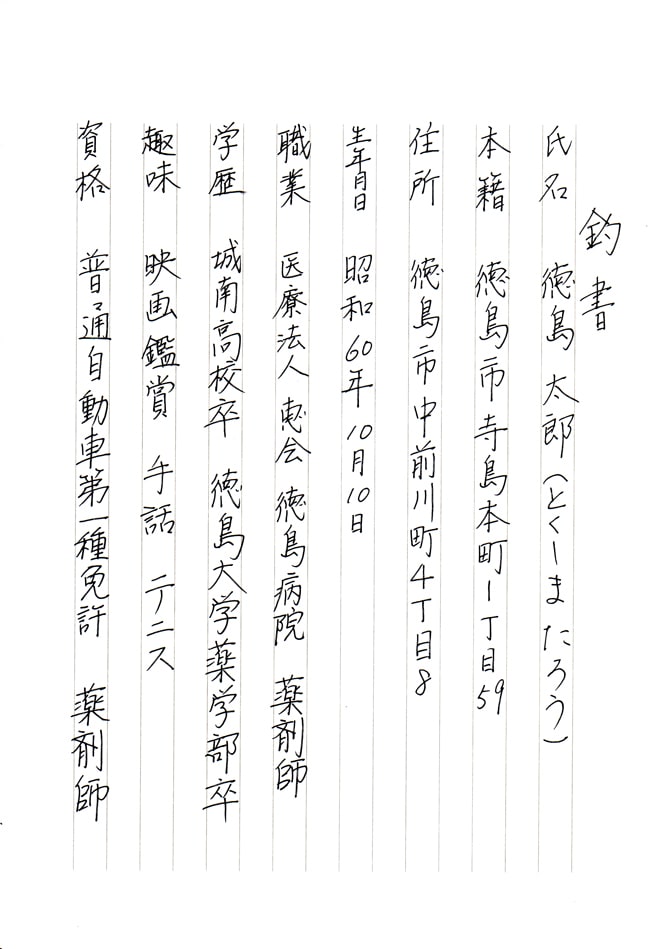 釣書
氏名 徳島 太郎(とくしま たろう)
本籍 徳島市寺島本町1丁目59
住所 徳島市中前川町4丁目8
生年月日 昭和60年10月10日
職業 医療法人 恵会 徳島病院 薬剤師
学歴 城南高校卒 徳島大学薬学部卒
趣味 映画鑑賞 手話 テニス
資格 普通自動車第一種免許 薬剤師